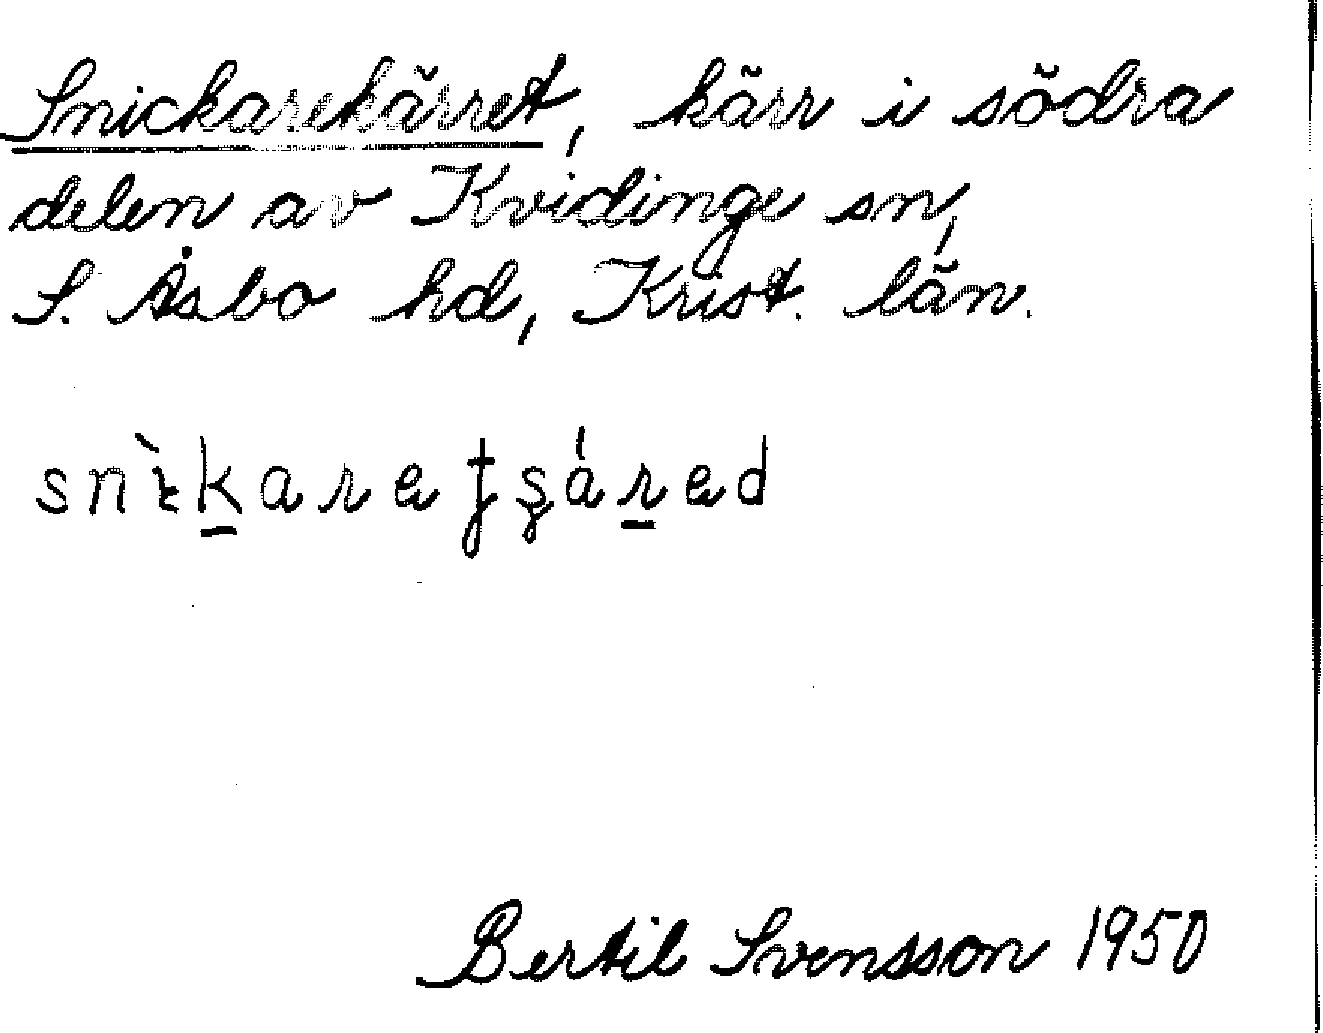 Snickarekärret, kärr i södra
delen av Kvidinge sn,
S. Åsbo hd, Krist. län.
Bertil Svensson 1950